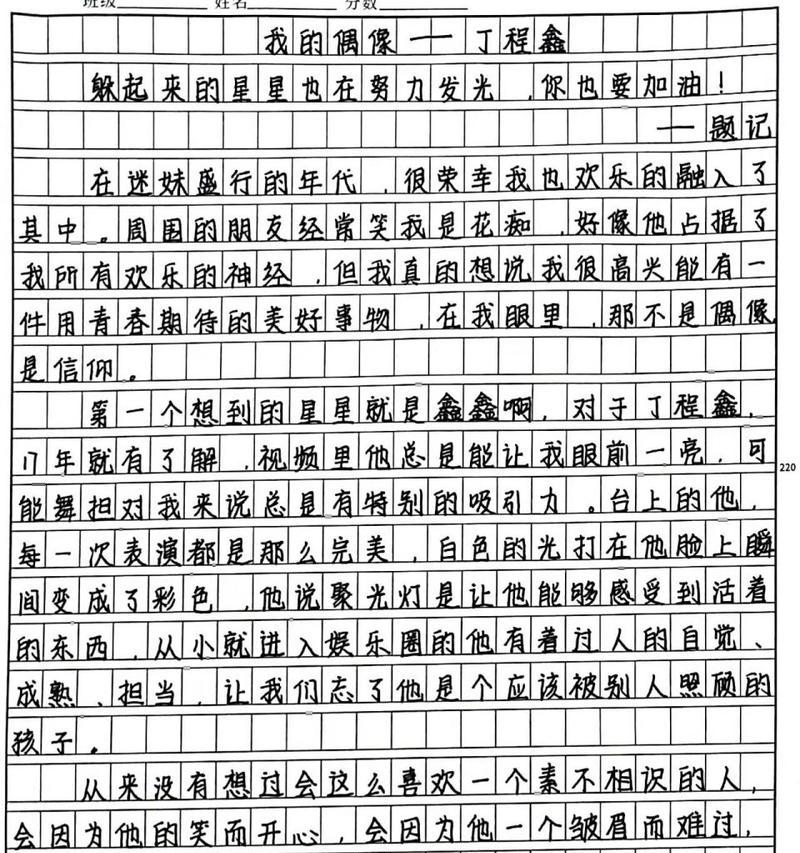 班级 姓名 分数
我的偶像——丁程鑫
躲起来的星星也在努力发光，你也要加油！
——题记
在迷妹盛行的年代，很荣幸我也欢乐的融入了
其中。周围的朋友经常笑我是花痴，好像他占据了
我所有欢乐的神经，但我真的想说我很高兴能有一
件用青春期待的美好事物，在我眼里，那不是偶像
是信仰。
第一个想到的星星就是鑫鑫啊，对于丁程鑫，
17年就有了解，视频里他总是能让我眼前一亮，可
220
能舞担对我来说总是有特别的吸引力。台上的他，
每一次表演都是那么完美，白色的光打在他脸上瞬
间变成了彩色，他说聚光灯是让他能够感受到活着
的东西，从小就进入娱乐圈的他有着过人的自觉、
成熟、担当，让我们忘了他是个应该被别人照顾的
孩子。
从来没有想过会这么喜欢一个素不相识的人，
会因为他的笑而开心，会因为他一个皱眉而难过，